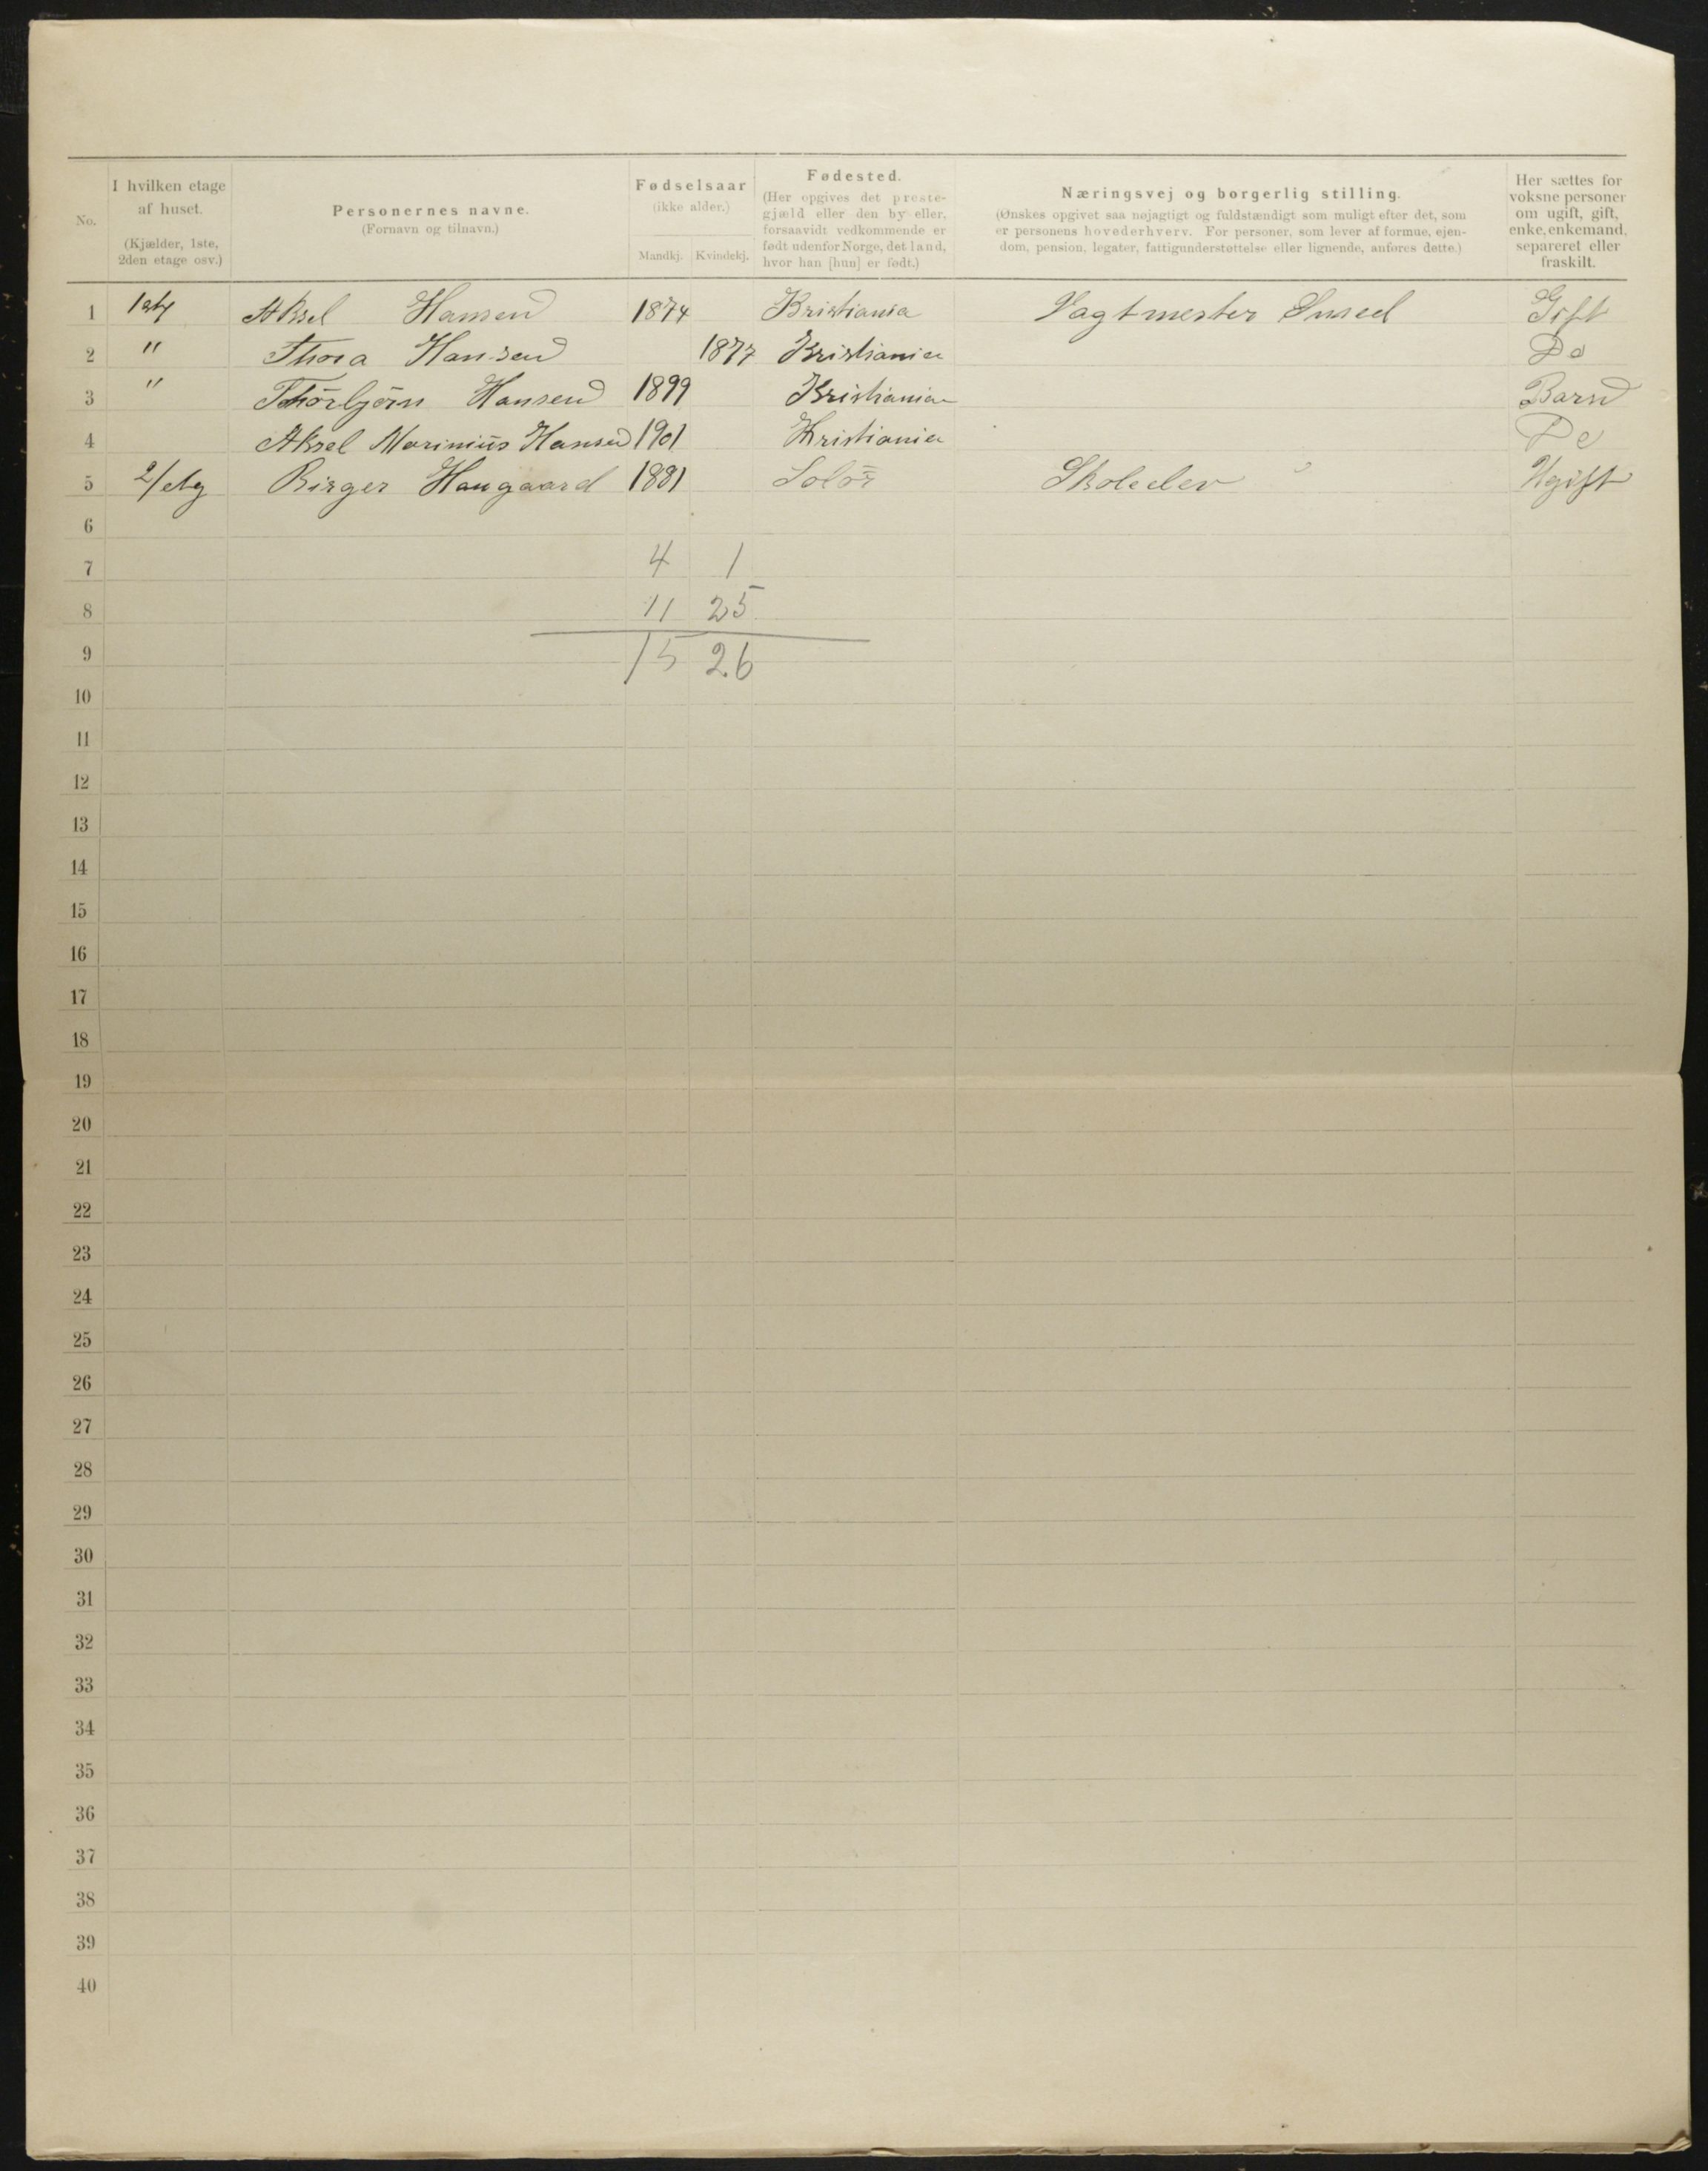 No.
I hvilken etage
af huset.
(Kjælder, 1ste,
2den etage osv.)
Personernes navne.
(Fornavn og tilnavn.)
Fødselsaar
(ikke alder.)
Mandkj. Kvindekj.
Fødested.
(Her opgives det præste-
gjæld eller den by eller,
forsaavidt vedkommende er
født udenfor Norge, det land,
hvor han [hun] er født.)
Næringsvej og borgerlig stilling.
(Ønskes opgivet saa nøjagtigt og fuldstændigt som muligt efter det, som
er personens hovederhverv. For personer, som lever af formue, ejen-
dom, pension, legater, fattigunderstøttelse eller lignende, anføres dette.)
Her sættes for
voksne personer
om ugift, gift,
enke, enkemand,
separeret eller
fraskilt.
1 Aksel Hansen 1874 Kristiania Vagtmester Gift
2 " Thora Hansen 1877 Kristiania Do
3 " Thorbjörn Hansen 1899 Kristiania Barn
4 Aksel Marinius Hansen 1901 Kristiania Do
5 2/etg Birger Haugaard 1881 Solör Skoleelev Ugift
6
7 4 1
8 11 25
9 15 26
10
11
12
13
14
15
16
17
18
19
20
21
22
23
24
25
26
27
28
29
30
31
32
33
34
35
36
37
38
39
40